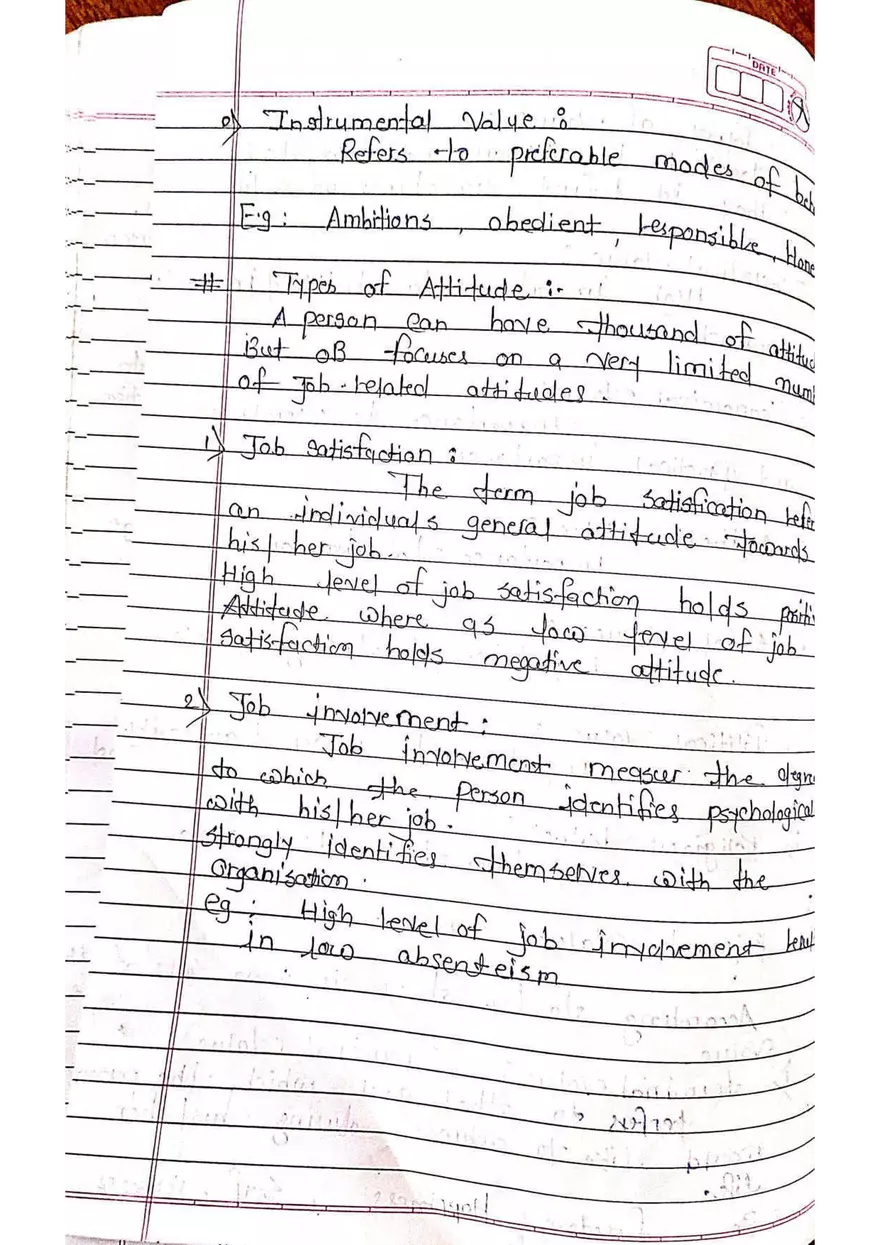 DATE
2) Instrumental Value :
Refers to preferable modes of beh
E.g : Ambitions, obedient, responsible, Hone
# Types of Attitude :-
A person can have thousand of attitud
But OB focuses on a very limited num
of Job-related attitudes.
1) Job satisfaction :
The term job satisfication refer
an individual's general attitude towards
his/her job.
High level of job satisfaction holds positi
Attitude where as low level of job
satisfaction holds negative attitude.
2) Job involvement :
Job involvement measur the degre
to which the person identifies psychological
with his/her job.
strongly identifies themselves with the
organisation.
eg : High level of job involvement
in low absenteism